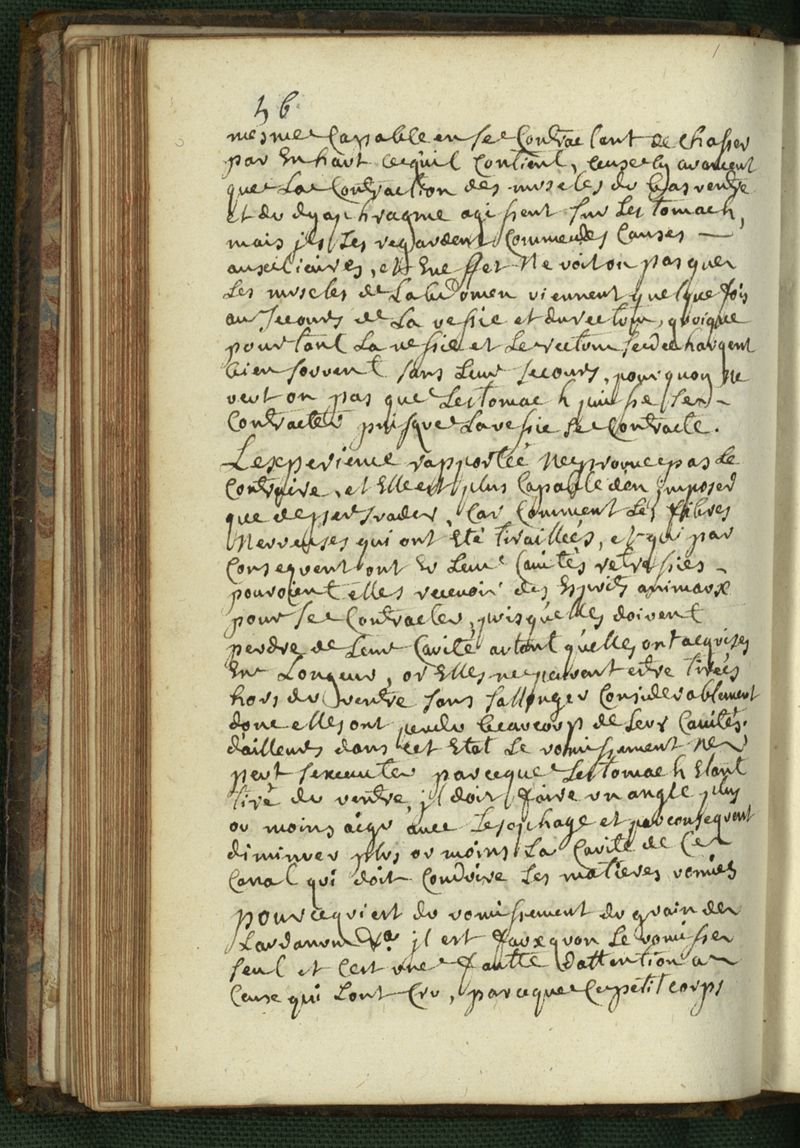 46
mesme Capable en se Contractant de chasser
par En haut ce qu'il Contient, Ceuse cy avancent
que La Contraction des muscles du bas ventre
et du dyaphragme agissent sur Lestomach,
mais ils Les regardent Comme des Causes
auxiliaires, et En effet Ne voit on pas que
Les muscles de Labdomen viennent quelque fois
au secours de La vessie et du rectum, quoique
pourtant La vessie et Le rectum se dechargent
bien souvent sans Leur secours, pourquoy Ne
veut on pas que Lestomach puisse se
Contracter puisque La vessie se Contracte.
Lexperience rapportée Ne prouve pas Le
Contraire, et Elle est plus Capable den Imposer
que de persuader, Car Comment Les fibres
Nerveuses qui ont Eté tiraillées, et qui par
Consequent ont Eu Leur Cavités retressies
pouroient elles recevoir des Esprits animaux
pour se Contracter, puis qu'elles doivent
perdre de Leur Cavité autant qu'elles ont acquises
En Longeur, or Elles ne peuvent etre tirées
hors du ventre sans sallonger Considerablement
donc elles ont perdu beaucoup de Leur Cavités.
d'ailleurs dans cet Etat Le vomissement Ne
peut sexecuter parceque Lestomach Etant
tiré du ventre, il doit faire un angle plus
ou moins aigu avec Lesophage et par consequent
diminuer plus ou moins La Cavité de Ce
Canal qui doit Conduire Les matieres vomies
pour ce qui est du vomissement du grain de
Laudanum &a. il est faux quon Le vomisse
seul et Cest une faute dattention a
Ceuse qui Lont Cru, parceque Ce petit corps